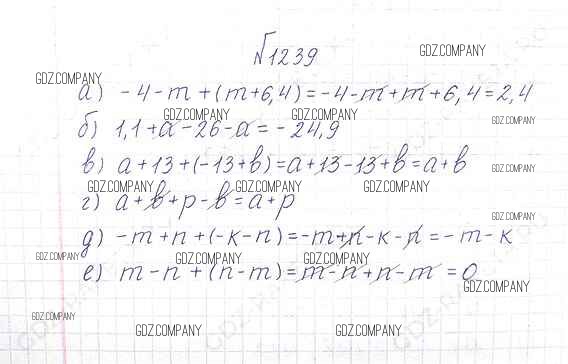 №1239
GDZ.COMPANY
GDZ.COMPANY
а) -4-m+(m+6,4)=-4-m+m+6,4=2,4
GDZ.COMPANY GDZ.COMPANY GDZ.COMPANY
б) 1,1+a-26-a=-24,9
в) a+13+(-13+b)=a+13-13+b=a+b
GDZ.COMPANY
GDZ.COMPANY GDZ.COMPANY GDZ.COMPANY
г) a+b+p-b=a+p
GDZ.COMPANY
д) -m+n+(-k-n)=-m+n-k-n=-m-k
GDZ.COMPANY GDZ.COMPANY GDZ.COMPANY
е) m-n+(n-m)=m-n+n-m=0
GDZ.COMPANY
GDZ.COMPANY
GDZ.COMPANY GDZ.COMPANY